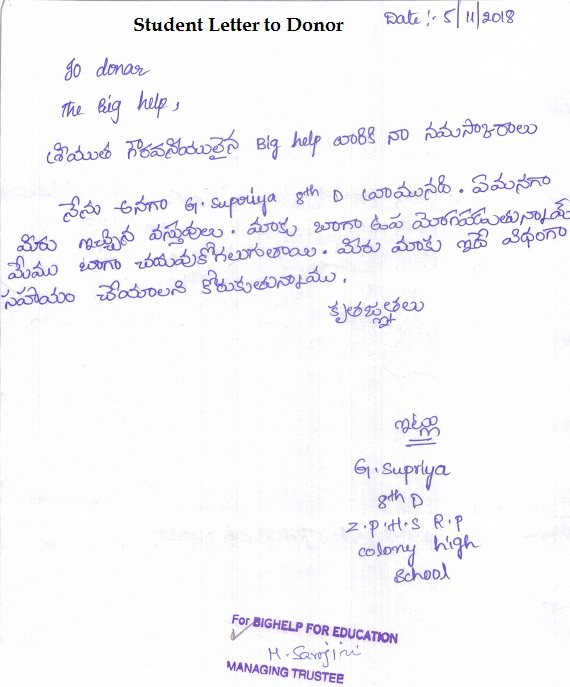 Student Letter to Donor
Date :- 5/11/2018
To donar
The Big help,
శ్రీయుత గౌరవనియులైన Big help వారికి నా నమస్కారాలు
నేను అనగా G. Supriya 8th D వ్రాయునది. ఏమనగా
మీరు ఇచ్చిన వస్తువులు. మాకు బాగా ఉప యోగపడుతున్నాయి
మేము బాగా చదువుకోగలుగుతాయి. మీరు మాకు ఇదే విధంగా
సహాయం చేయాలని కోరుకుతున్నాము.
కృతజ్ఞతలు
ఇట్లు
G. Supriya
8th D
Z.P.H.S R.P
colony high
School
For BIGHELP FOR EDUCATION
M. Sarojini
MANAGING TRUSTEE